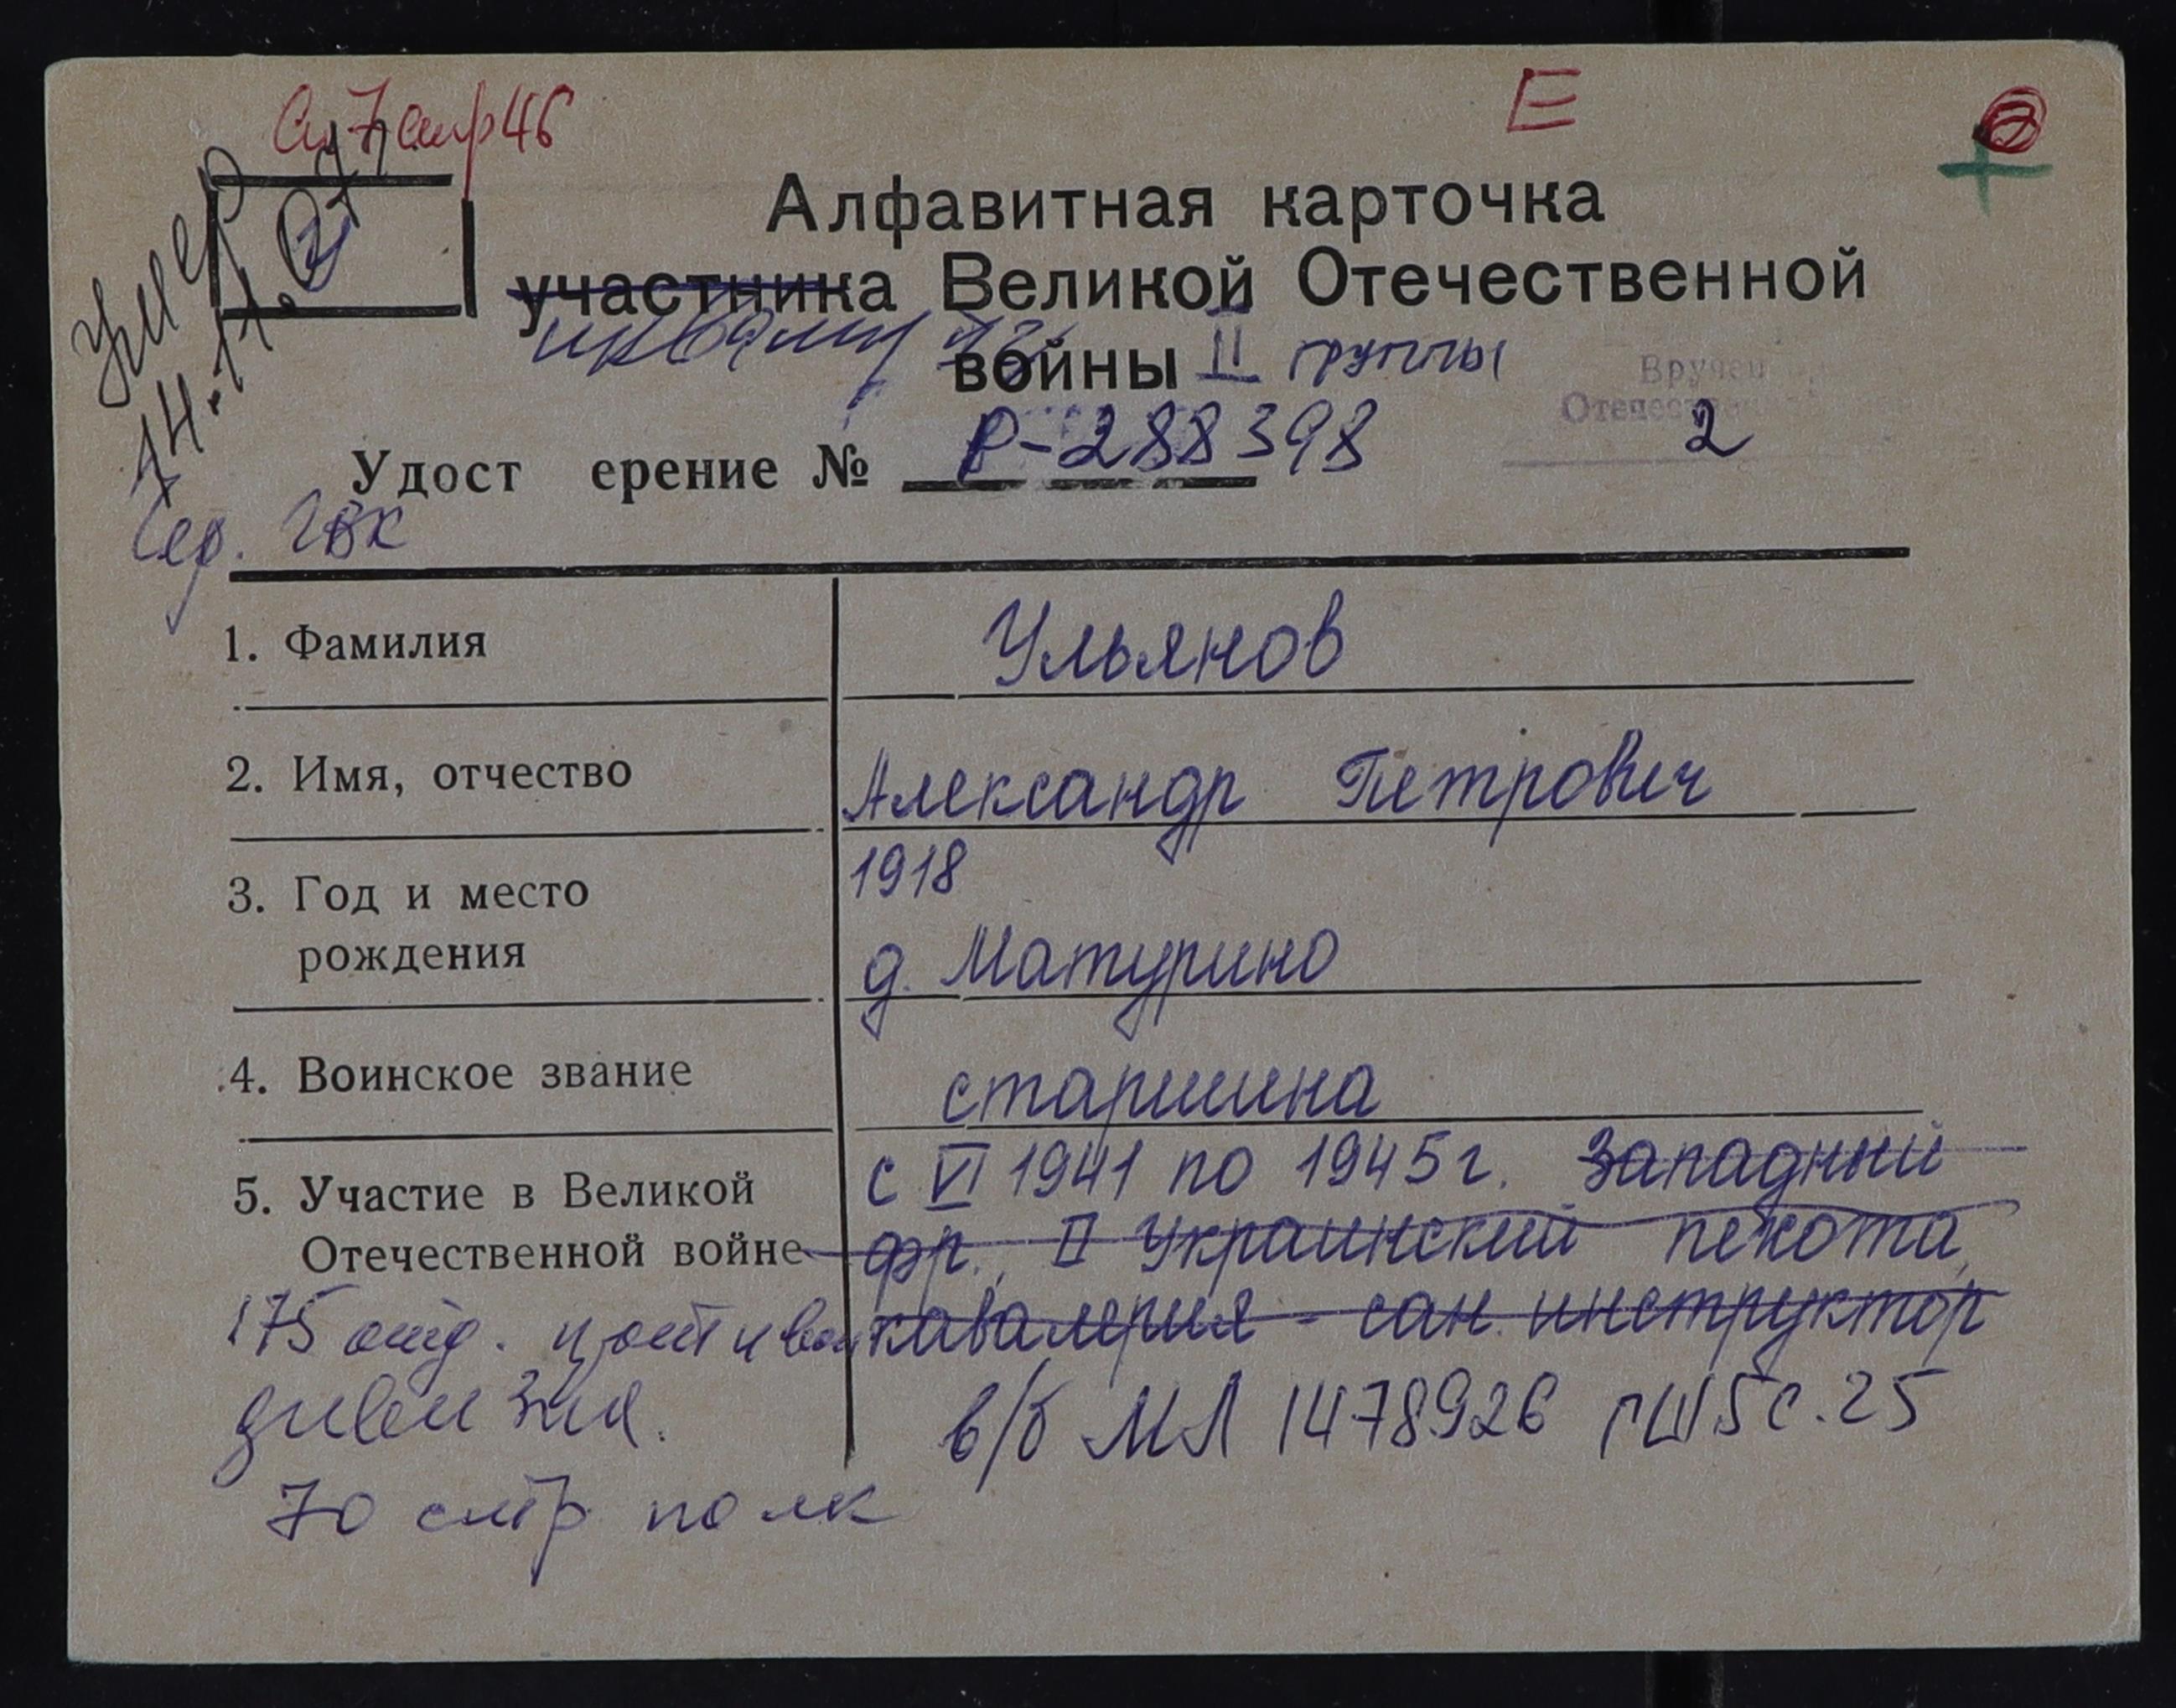 Е
Алфавитная карточка
участника Великой Отечественной
войны II группы
Умер
Вручен
2
Удост ерение № Р-288398
Сер. ГВК
1. Фамилия Ульянов
2. Имя, отчество Александр Петрович
3. Год и место 1918
рождения д. Матурино
4. Воинское звание старшина
5. Участие в Великой с VI 1941 по 1945 г. Западный
Отечественной войне фр., II Украинский пехота,
175 отд. кавалерия - сан. инструктор
дивизия. в/б МЛ 1478926 ГШ 5 с. 25
70 стр полк